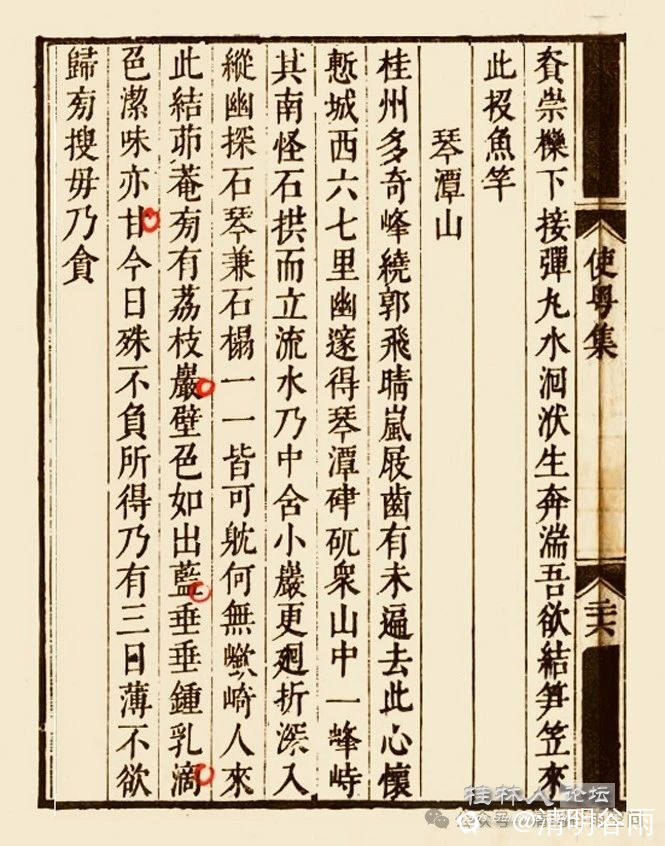 使粤集
崇櫟下接彈丸水洄洑生奔湍吾欲結笋笠來
此投魚竿
琴潭山
桂州多奇峰繞郭飛晴嵐屐齒有未遍去此心懷
慙城西六七里幽邃得琴潭硉矹衆山中一峰峙
其南怪石拱而立流水乃中含小巖更廻折深入
縱幽探石琴兼石榻一一皆可躭何無嶔崎人來
此結茆菴旁有荔枝巖壁色如出藍垂垂鍾乳滴
色潔味亦甘今日殊不負所得乃有三日薄不欲
歸旁搜毋乃貪
桂林人论坛
@清明谷雨